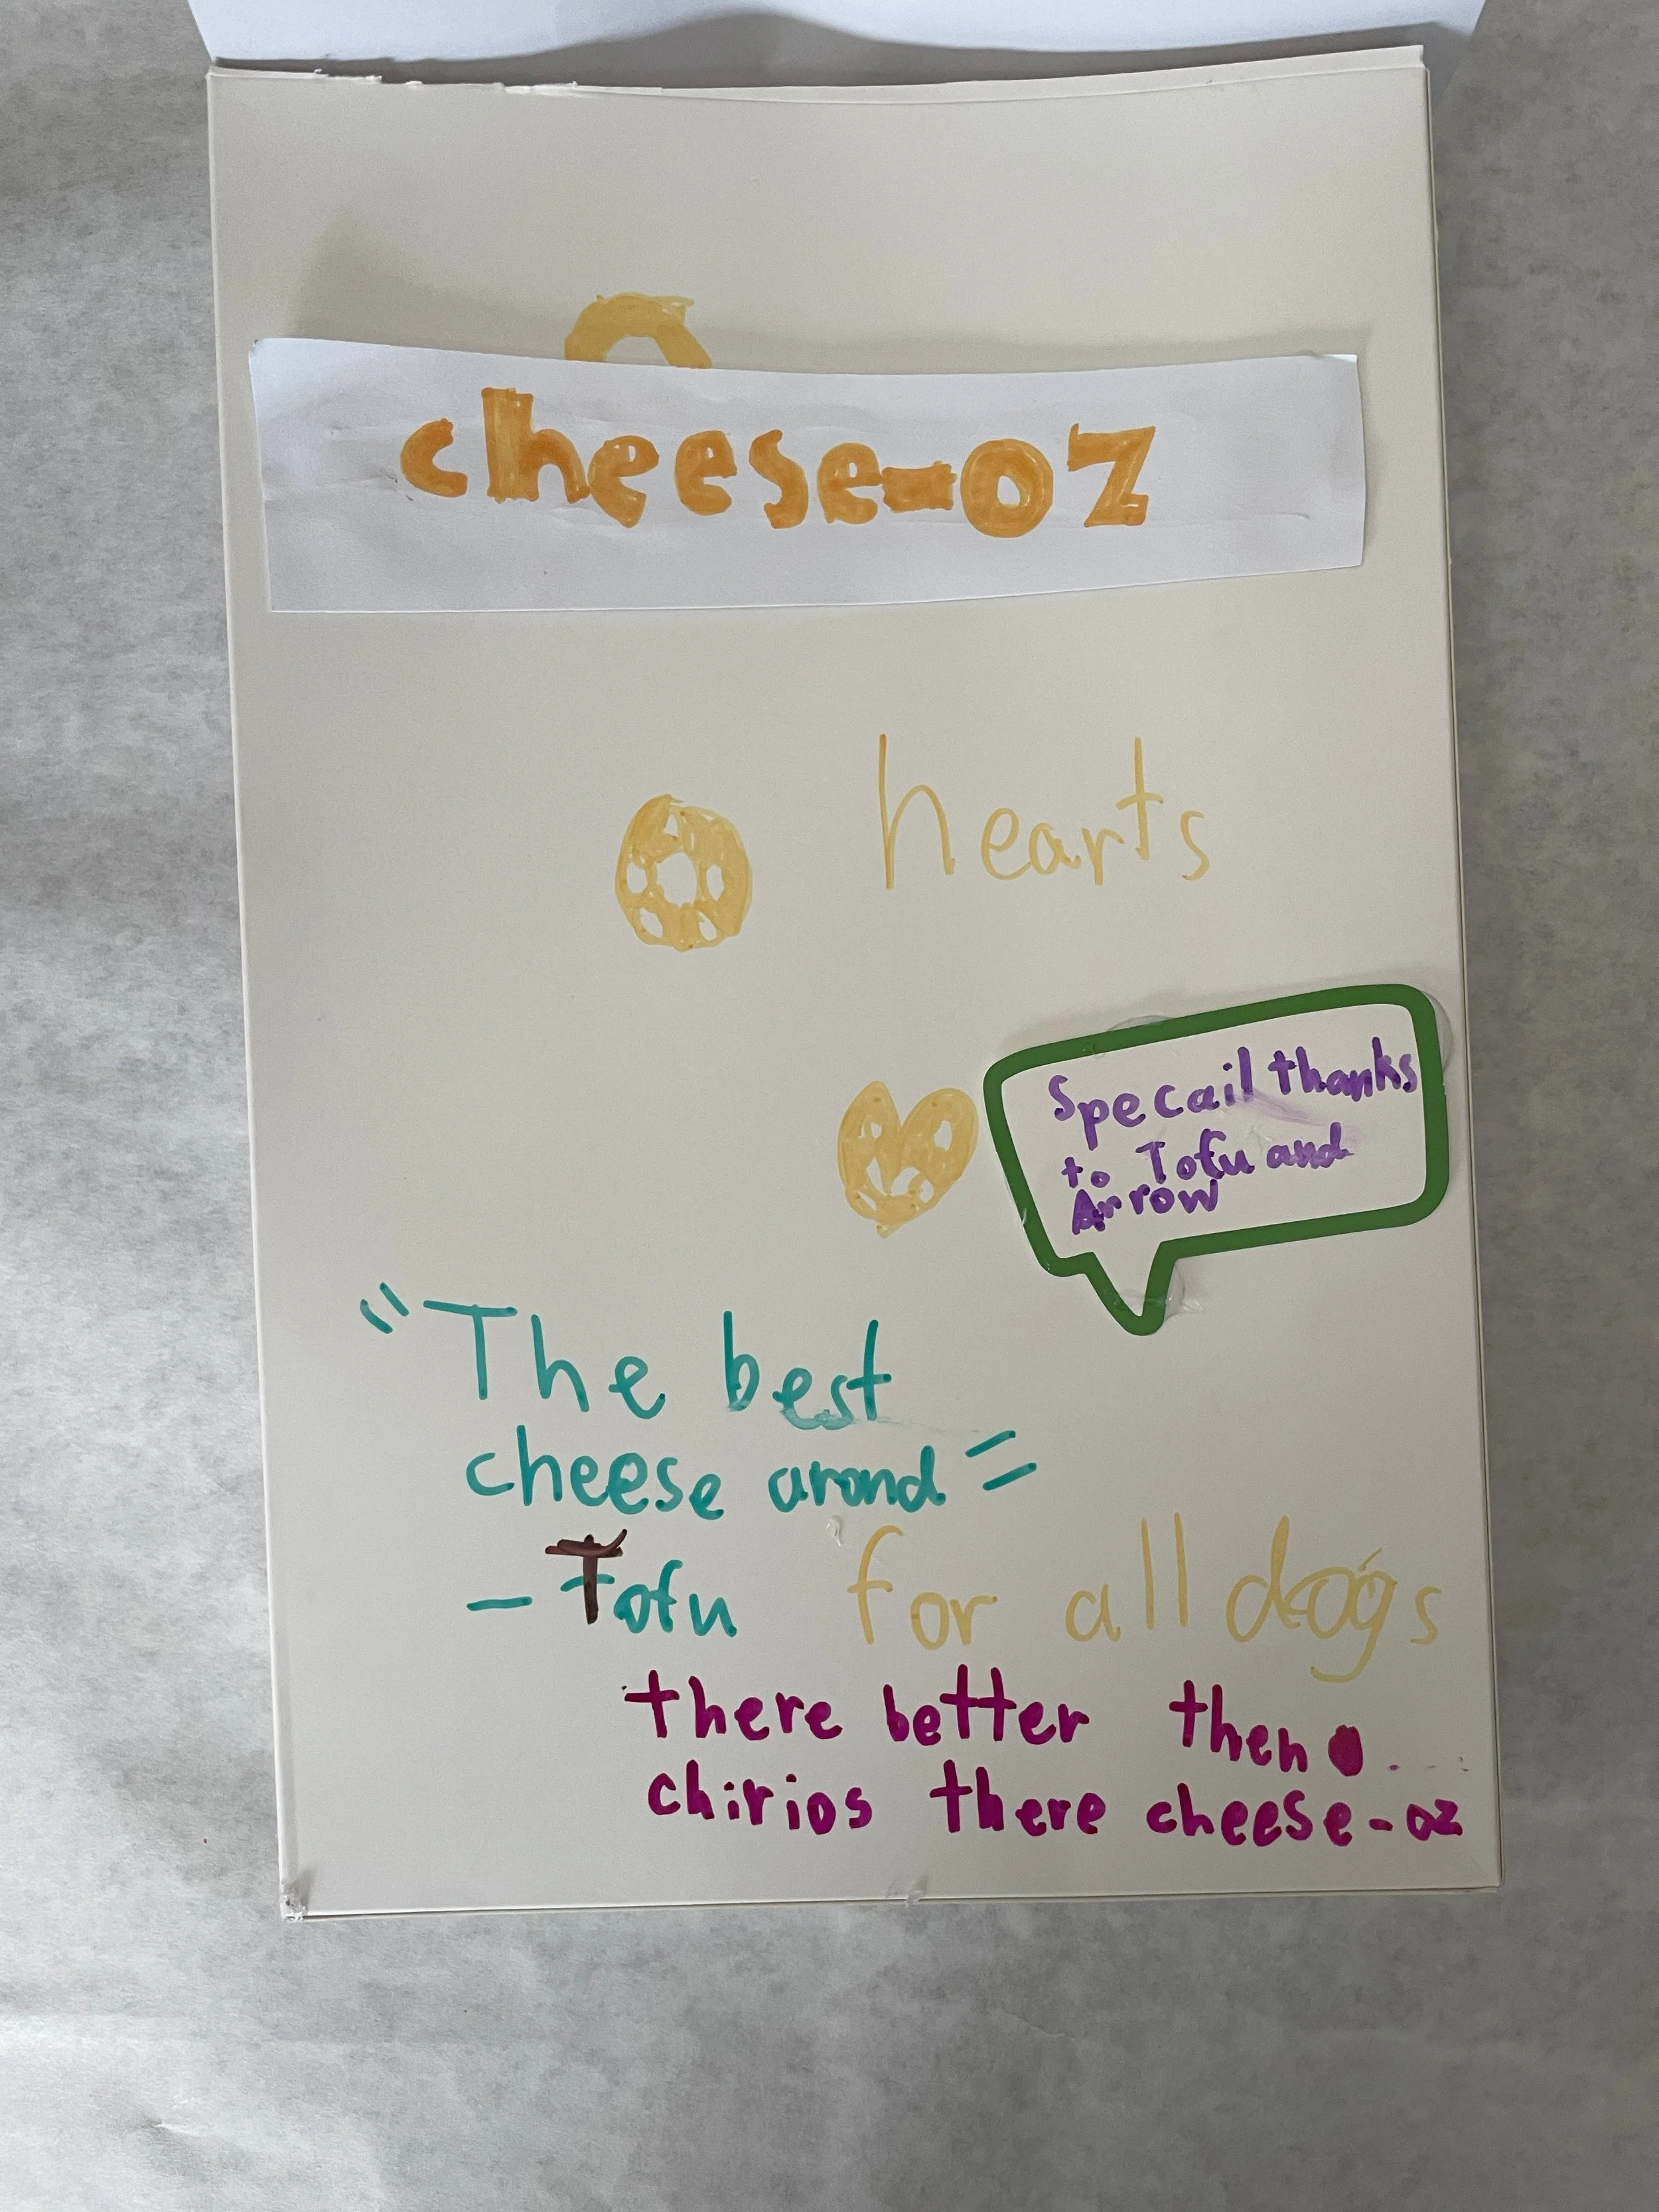 cheese-oz
hearts
Specail thanks
to Tofu and
Arrow
"The best
cheese arond"
- Tofu
for all dogs
there better then
chirios there cheese-oz